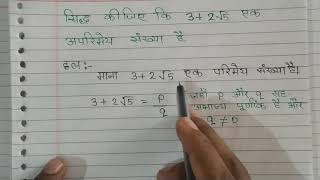 सिद्ध कीजिए कि 3+2√5 एक
अपरिमेय संख्या है
हल:-
माना 3+2√5 एक परिमेय संख्या है।
3+2√5 = p/q जहाँ p और q सह
अभाज्य पूर्णांक हैं और
q ≠ 0